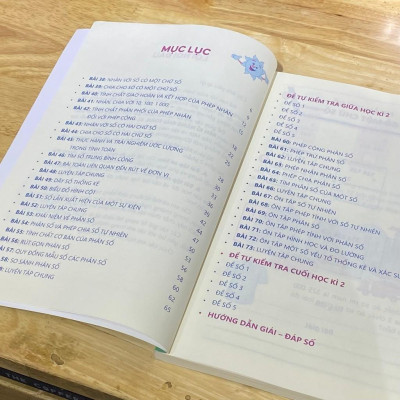 MỤC LỤC
BÀI 38: NHÂN VỚI SỐ CÓ MỘT CHỮ SỐ
BÀI 39: CHIA CHO SỐ CÓ MỘT CHỮ SỐ
BÀI 40: TÍNH CHẤT GIAO HOÁN VÀ KẾT HỢP CỦA PHÉP NHÂN
BÀI 41: NHÂN, CHIA VỚI 10, 100 1 000
BÀI 42: TÍNH CHẤT PHÂN PHỐI CỦA PHÉP NHÂN
ĐỐI VỚI PHÉP CỘNG
BÀI 43: NHÂN VỚI SỐ CÓ HAI CHỮ SỐ
BÀI 44: CHIA CHO SỐ CÓ HAI CHỮ SỐ
BÀI 45: THỰC HÀNH VÀ TRẢI NGHIỆM ƯỚC LƯỢNG
TRONG TÍNH TOÁN
BÀI 46: TÌM SỐ TRUNG BÌNH CỘNG
BÀI 47: BÀI TOÁN LIÊN QUAN ĐẾN RÚT VỀ ĐƠN VỊ
BÀI 48: LUYỆN TẬP CHUNG
BÀI 49: DÃY SỐ LIỆU THỐNG KÊ
BÀI 50: BIỂU ĐỒ HÌNH CỘT
BÀI 51: SỐ LẦN XUẤT HIỆN CỦA MỘT SỰ KIỆN
BÀI 52: LUYỆN TẬP CHUNG
BÀI 53: KHÁI NIỆM VỀ PHÂN SỐ
BÀI 54: PHÂN SỐ VÀ PHÉP CHIA SỐ TỰ NHIÊN
BÀI 55: TÍNH CHẤT CƠ BẢN CỦA PHÂN SỐ
BÀI 56: RÚT GỌN PHÂN SỐ
BÀI 57: QUY ĐỒNG MẪU SỐ CÁC PHÂN SỐ
58: SO SÁNH PHÂN SỐ
: LUYỆN TẬP CHUNG
ĐỀ TỰ KIỂM TRA GIỮA HỌC KÌ 2
ĐỀ SỐ 1
ĐỀ SỐ 2
ĐỀ SỐ 3
ĐỀ SỐ 4
ĐỀ SỐ 5
BÀI 60: PHÉP CỘNG PHÂN SỐ
BÀI 61: PHÉP TRỪ PHÂN SỐ
BÀI 62: LUYỆN TẬP CHUNG
BÀI 63: PHÉP NHÂN PHÂN SỐ
BÀI 64: PHÉP CHIA PHÂN SỐ
BÀI 65: TÌM PHÂN SỐ CỦA MỘT SỐ
BÀI 66: LUYỆN TẬP CHUNG
BÀI 67: ÔN TẬP SỐ TỰ NHIÊN
BÀI 68: ÔN TẬP PHÉP TÍNH VỚI SỐ TỰ NHIÊN
BÀI 69: ÔN TẬP PHÂN SỐ
BÀI 70: ÔN TẬP PHÉP TÍNH VỚI PHÂN SỐ
BÀI 71: ÔN TẬP HÌNH HỌC VÀ ĐO LƯỜNG
BÀI 72: ÔN TẬP MỘT SỐ YẾU TỐ THỐNG KÊ VÀ XÁC SU
BÀI 73: LUYỆN TẬP CHUNG
ĐỀ TỰ KIỂM TRA CUỐI HỌC KÌ 2
ĐỀ SỐ 1
ĐỀ SỐ 2
ĐỀ SỐ 3
ĐỀ SỐ 4
ĐỀ SỐ 5
HƯỚNG DẪN GIẢI – ĐÁP SỐ